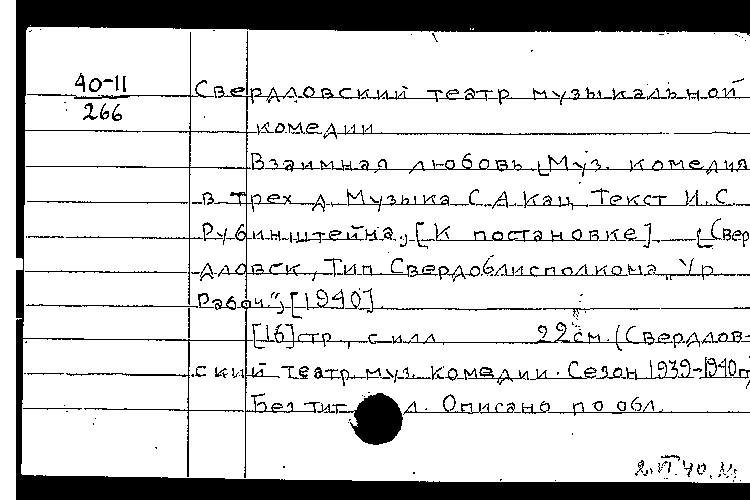 40-11
266
Свердловский театр музыкальной
комедии.
Взаимная любовь. [Муз. комедия
в трех д. Музыка С. А. Кац. Текст И. С.
Рубинштейна, [К постановке]. [Свер
дловск, Тип. Свердоблисполкома „Ур.
Рабоч.“, [1940].
[16] стр., с илл. 22 см. (Свердлов-
ский театр муз. комедии. Сезон 1939-1940 гг
Без тит. л. Описано по обл.
2.VI.40.